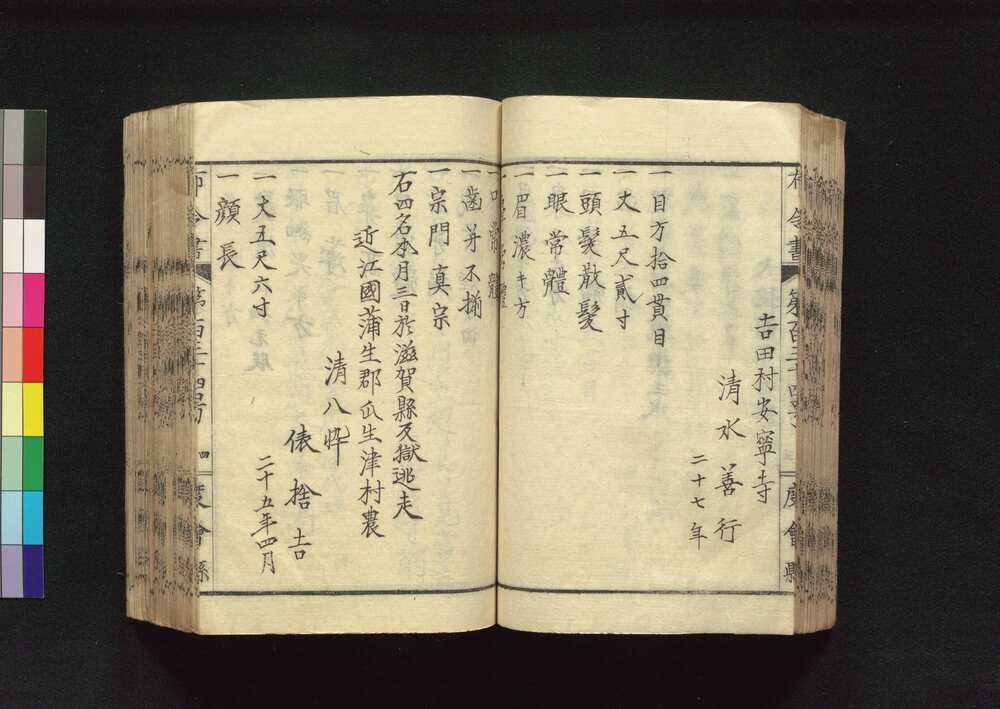 吉田村安寧寺
清水善行
二十七年
一目方拾四貫目
一丈五尺貳寸
一頭髪散髪
一眼常體
一眉濃キ方
一口常體
一歯并不揃
一宗門真宗
右四名本月三日於滋賀縣及獄逃走
近江國蒲生郡瓜生津村農
清八悴
俵捨吉
二十五年四月
一丈五尺六寸
一顔長
布令書
第百三十四号
四
度會縣